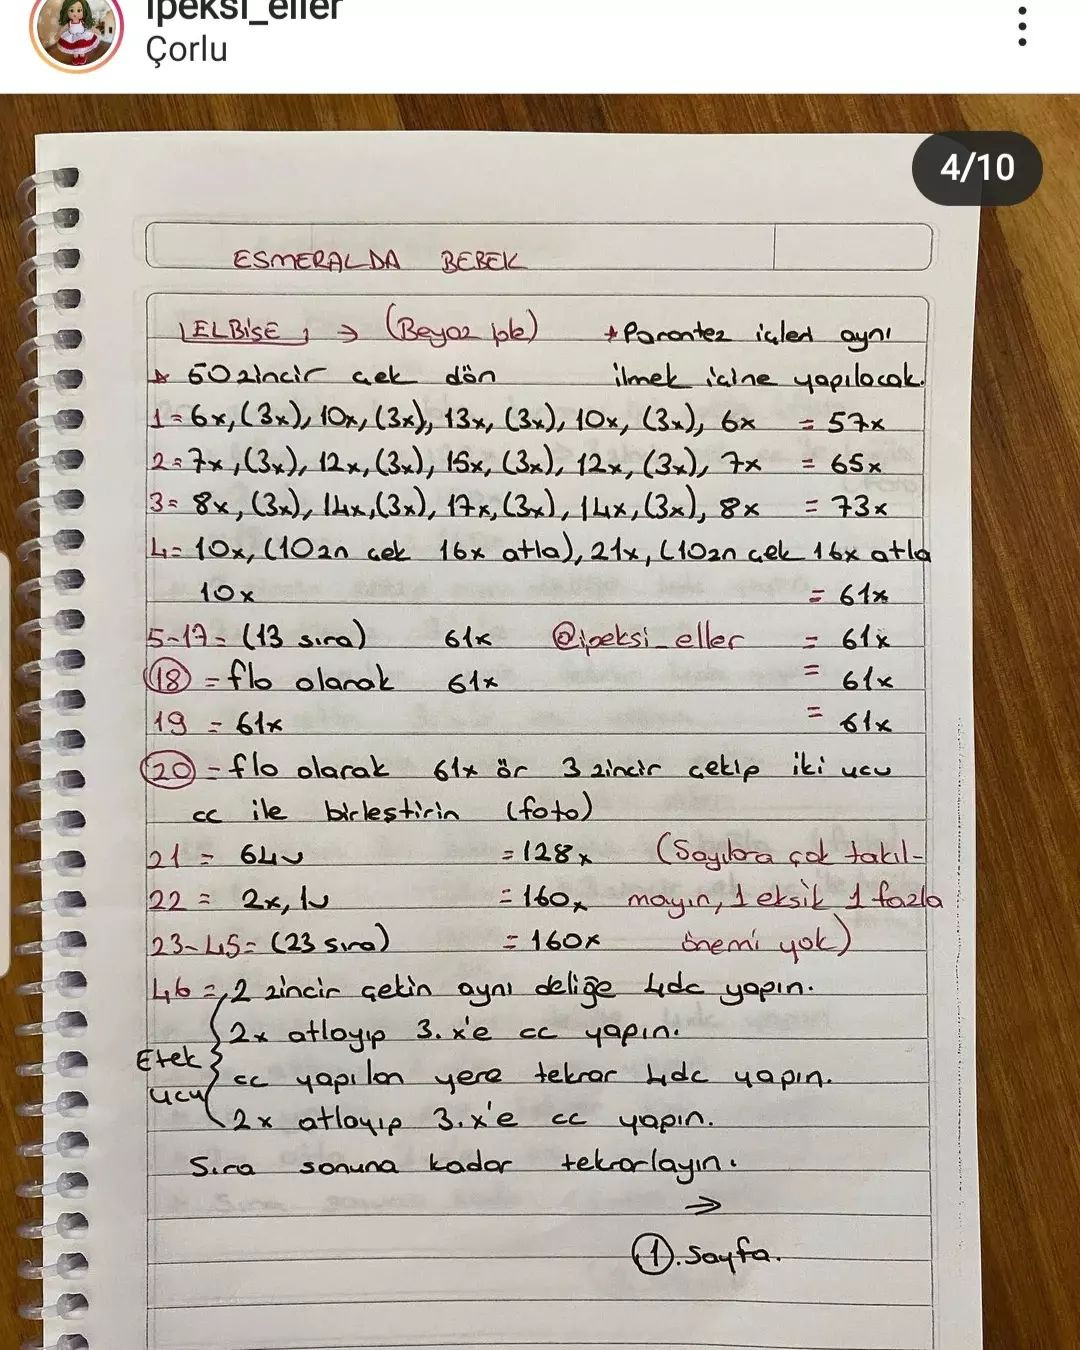 ipeksi_eller
Çorlu
4/10
ESMERALDA BEBEK
ELBİSE → (Beyaz ip) * Parantez içleri aynı
* 50 zincir çek dön ilmek içine yapılacak.
1 = 6x, (3x), 10x, (3x), 13x, (3x), 10x, (3x), 6x = 57x
2 = 7x, (3x), 12x, (3x), 15x, (3x), 12x, (3x), 7x = 65x
3 = 8x, (3x), 14x, (3x), 17x, (3x), 14x, (3x), 8x = 73x
4 = 10x, (10zn çek 16x atla), 21x, (10zn çek 16x atla
10x = 61x
5-17 = (13 sıra) 61x @ipeksi_eller = 61x
18 = flo olarak 61x = 61x
19 = 61x = 61x
20 = flo olarak 61x ör 3 zincir çekip iki ucu
cc ile birleştirin (foto)
21 = 64v = 128x (Sayılara çok takıl-
22 = 2x, 1v = 160x mayın, 1 eksik 1 fazla
23-45 = (23 sıra) = 160x önemi yok)
46 = 2 zincir çekin aynı deliğe 4dc yapın.
2x atlayıp 3. x'e cc yapın.
Etek
cc yapılan yere tekrar 4dc yapın.
ucu
2x atlayıp 3. x'e cc yapın.
Sıra sonuna kadar tekrarlayın.
→
1. Sayfa.